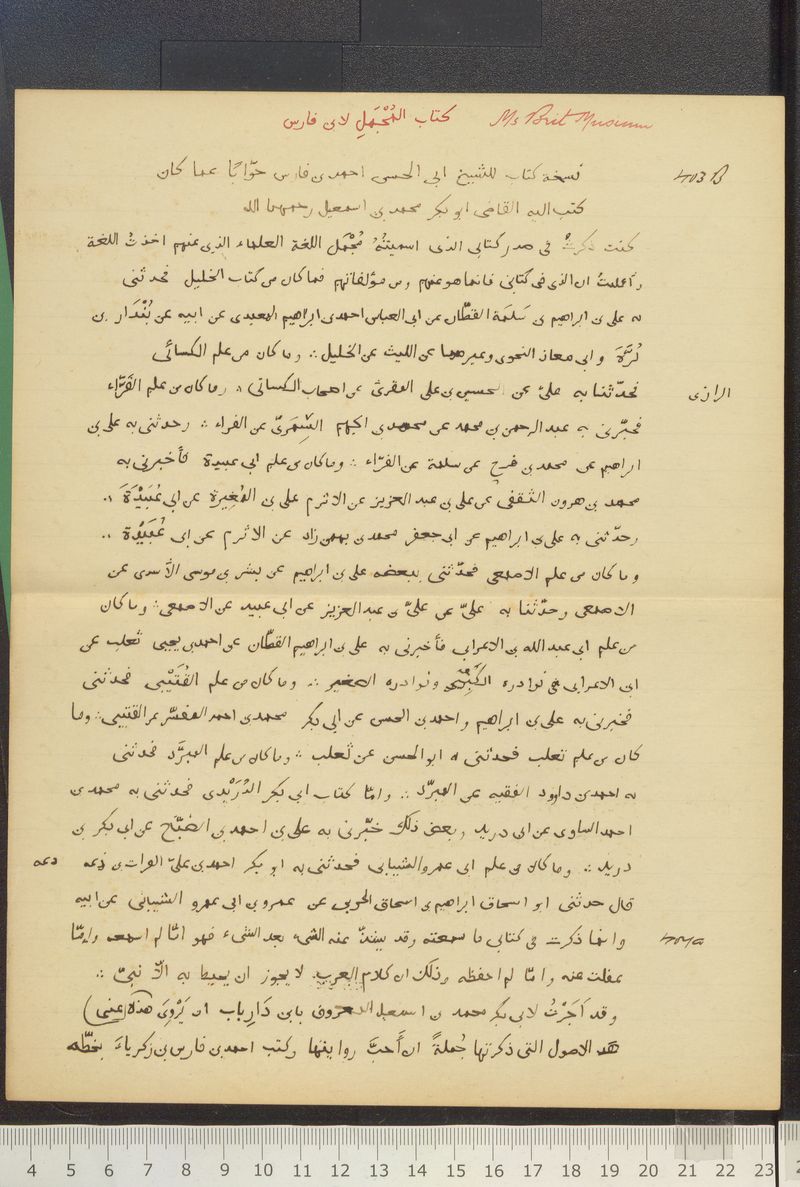 كتاب المُجْمَلِ لابن فارس Ms Brit Museum
نسخة كتاب للشيخ ابى الحسىن احمد بن فارس جوّابًا عما كان 403 B
كتب اليه القاضى ابو بكر محمد بن اسمعيل رحمهما الله
كنت ذكرتُ فى صدر كتابى الذى اسميتُهُ مُجْمَل اللغة العلماء الذين عنهم اخذتُ اللغة
واعلمتُ ان الذى فى كتابى فانما هو عنهم ومن مؤلفاتهم فما كان من كتاب الخليل فحدثنى
به على بن ابراهيم بن سَلمَة القطّان عن ابى العباس احمد بن ابراهيم المعيدى عن ابيه عن بُنْدَار بن
لُرَّةَ وابى معاذ النحوى وغيرهما عن الليث عن الخليل ؞ وما كان من علم الكسائى
فحدّثنا به علىّ عن الحسين بن على العقرىّ عن اصحاب الكسائى ؞ وما كان من علم الفَرّاء الرازى
فخبّرنى به عبد الرحمن بن محمد عن محمد بن الجهم الشِمَرىّ عن الفراء ؞ وحدثنى به على بن
ابراهيم عن محمد بن فرح عن سلمة عن الفرّاء ؞ وما كان من علم ابى عبيدة فأخبرنى به
محمد بن هرون الثقفى عن على بن عبد العزيز عن الاثرم على بن المُغِيرة عن ابى عُبَيْدَةَ ؞
وحدّثنى به على بن ابراهيم عن ابى جعفر محمد بن بهمن زاد عن الاثرم عن ابى عُبَيْدة ؞
وما كان من علم الاصمعى فحدّثنى ببعضه على بن ابراهيم عن بشر بن موسى الأسدى عن
الاصمعى وحدّثنا به علىّ عن علىّ بن عبد العزيز عن ابى عبيد عن الاصمعى ؞ وما كان
من علم ابى عبد الله بن الاعرابى فأخبرنى به على بن ابراهيم القطّان عن احمد بن يحيى ثعلب عن
ابن الاعرابى فى نوادره ونوادره الصغير ؞ وما كان من علم القُتَيْبى فحدثنى
فخبرنى به على بن ابراهيم واحمد بن الحسن عن ابى بكر محمد بن احمد المفسّر عن القتيبى ؞ وما
كان من علم ثعلب فحدثنى به ابو الحسن عن ثعلب ؞ وما كان من علم المبرَّد فحدثنى
به احمد بن داود الفقيه عن المبرّد ؞ وامّا كتاب ابى بكر الدُرَيْدى فحدثنى به محمد بن
احمد الساوى عن ابن دريد وبعض ذلك خبّرنى به على بن احمد بن الصّبّح عن ابى بكر بن
دريد ؞ وما كان من علم ابى عمرو الشيبانى فحدثنى به ابو بكر احمد بن علىّ
قال حدثنى ابو اسحاق ابراهيم بن اسحاق الحربى عن عمرو بن ابى عمرو الشيبانى عن ابيه
وانما ذكرت فى كتابى ما سمعته وقد يندّ عنه الشىء بعد الشىء فهو امّا لم اسمعه وامّا 404a
غفلت عنه وامّا لم احفظه وذلك ان كلام العرب لا يجوز ان يحيط به الّا نبىّ ؞
وقد اَجَزْتُ لابى بكر محمد بن اسمعيل المعروف بابن دَارِباب ان يَرْوِىَ هذه (عنى)
هذه الاصول التى ذكرتها جُملةً ان أَحبَّ روايتها وكتب احمد بن فارس بن زكرياءَ بخطّه